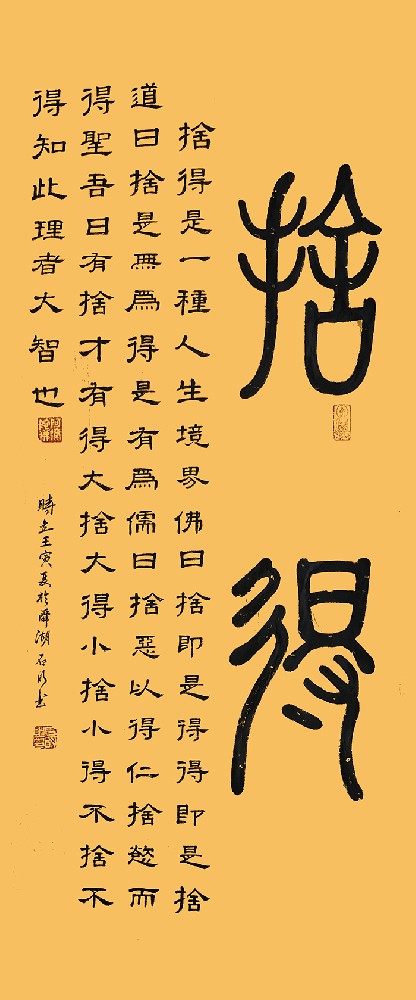 捨得
捨得是一種人生境界佛曰捨即是得得即是捨
道曰捨是無爲得是有爲儒曰捨惡以得仁捨慾而
得聖吾曰有捨才有得大捨大得小捨小得不捨不
得知此理者大智也
時在壬寅夏於舜湖石書